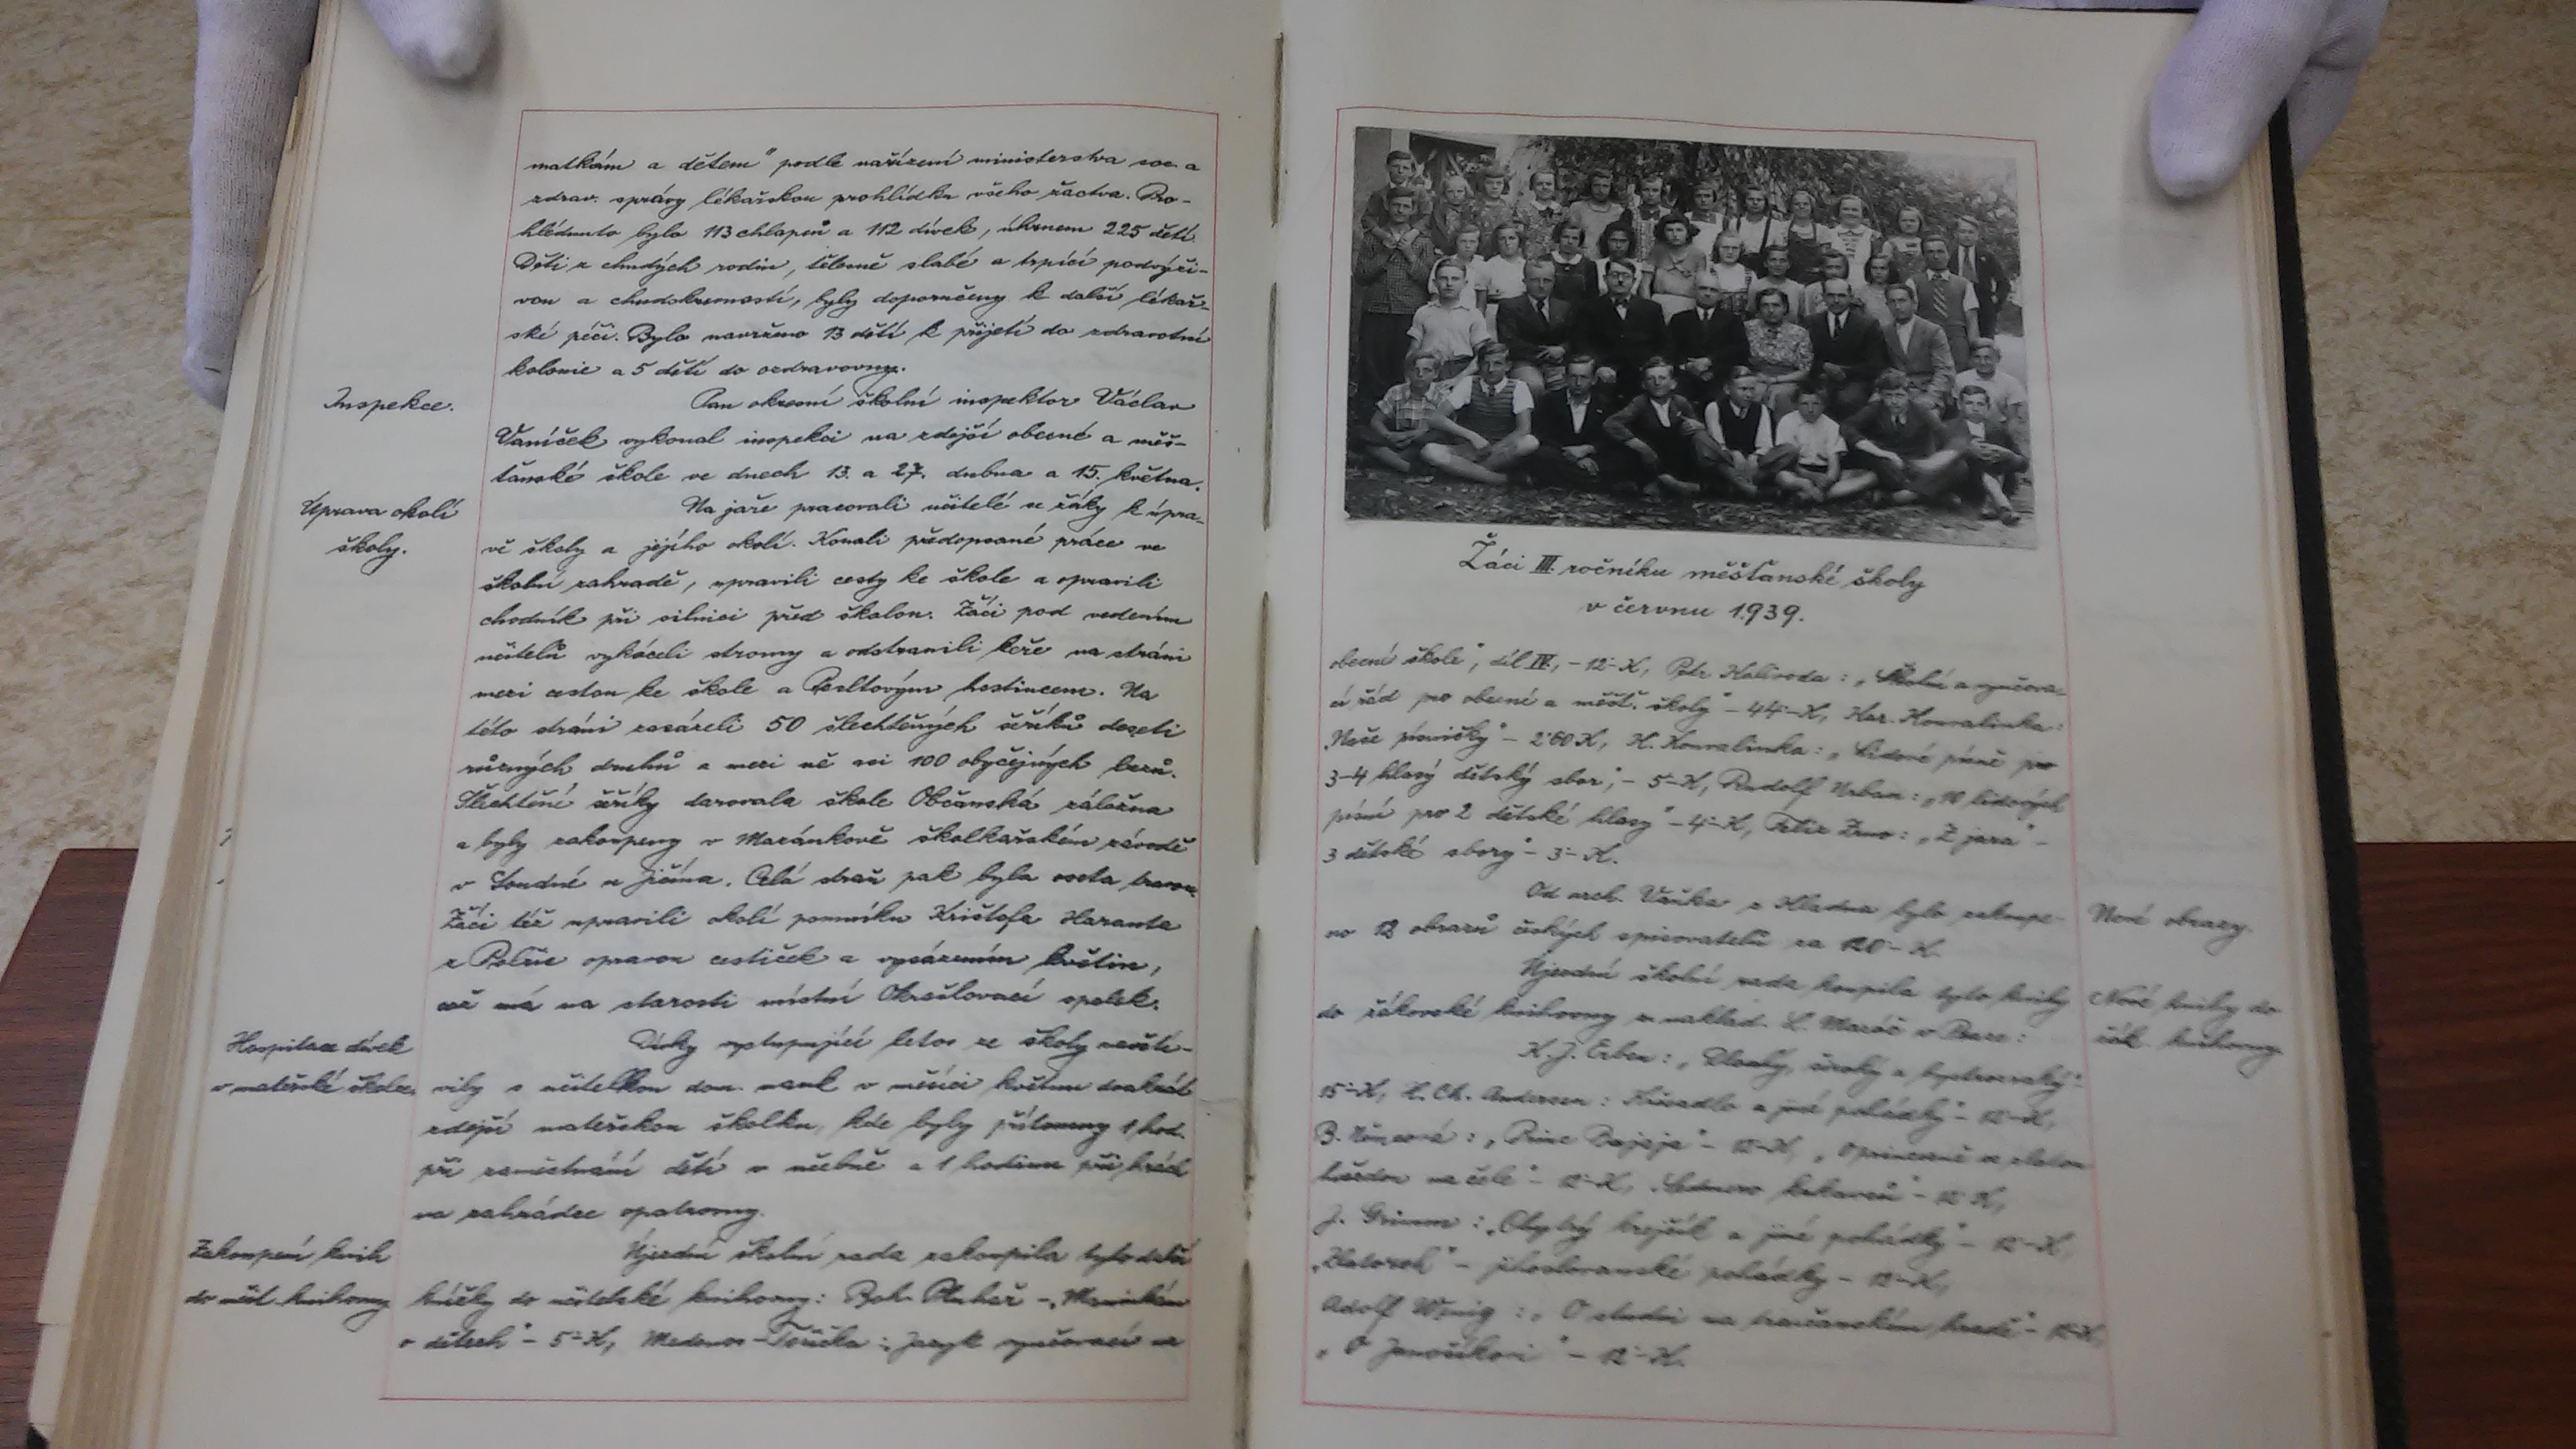 matkám a dětem" podle nařízení ministerstva soc. a
zdrav. správy lékařskou prohlídku všeho žactva. Pro-
hlédnuto bylo 113 chlapců a 112 dívek, úhrnem 225 dětí.
Děti z chudých rodin, tělesně slabé a trpící podvýži-
vou a chudokrevností, byly doporučeny k další lékař-
ské péči. Bylo navrženo 13 dětí k přijetí do zdravotní
kolonie a 5 dětí do ozdravovny.
Inspekce.
Pan okresní školní inspektor Václav
Vaníček vykonal inspekci na zdejší obecné a měš-
ťanské škole ve dnech 13. a 27. dubna a 15. května.
Úprava okolí
školy.
Na jaře pracovali učitelé se žáky k úpra-
vě školy a jejího okolí. Konali předepsané práce ve
školní zahradě, upravili cesty ke škole a opravili
chodník při silnici před školou. Žáci pod vedením
učitelů vykáceli stromy a odstranili keře na stráni
mezi cestou ke škole a Pesltovým hostincem. Na
této stráni zasázeli 50 šlechtěných šeříků deseti
různých druhů a mezi ně asi 100 obyčejných bezů.
Šlechtěné šeříky darovala škole Občanská záložna
a byly zakoupeny v Mazánkově školkařském závodě
v Soudné u Jičína. Celá stráň pak byla oseta travou.
Žáci též upravili okolí pomníku Krištofa Haranta
z Polžic opravou cestiček a vysázením květin,
což má na starosti místní Okrašlovací spolek.
Hospitace dívek
v mateřské školce.
Dívky vystupující letos ze školy navští-
vily s učitelkou dom. nauk v měsíci květnu dvakrát
zdejší mateřskou školku, kde byly přítomny 1 hod.
při zaměstnání dětí v učebně a 1 hodinu při hrách
na zahrádce opatrovny.
Zakoupení knih
do učit. knihovny
Újezdní školní rada zakoupila tyto další
knížky do učitelské knihovny: Boh. Pluhař -
o dětech" - 5·-K, : Jazyk vyučovací na
Žáci III. ročníku měšťanské školy
v červnu 1939.
obecné škole", díl IV, - 12·-K, Petr Kalivoda : „Školní a vyučova-
cí řád pro obecné a měšť. školy" - 44·-K, Kar. Konvalinka:
„Naše písničky" - 2·60 K, K. Konvalinka: „Lidové písně pro
3-4 hlasý dětský sbor", - 5·-K, Rudolf Urban: „10 lidových
písní pro 2 dětské hlasy" - 4·-K, Felix Zrno: „Z jara" -
3 dětské sbory" - 3·-K.
Nové obrazy.
Od arch. z Kladna bylo zakoupe-
no 12 obrazů českých spisovatelů za 120·-K.
Nové knihy do
žák. knihovny.
Újezdní školní rada koupila tyto knihy
do žákovské knihovny u naklad. L. Mazáč v Praze:
K. J. Erben: „Dlouhý, široký a bystrozraký"-
15·-K, H. Ch. Andersen: Křesadlo a jiné pohádky" - 12·-K,
B. Němcová: „Princ Bajaja" - 12·-K, „O princezně se zlatou
hvězdou na čele" - 12·-K, „Sedmero krkavců" - 12·K,
J. Grimm: „Chytrý krejčík a jiné pohádky" - 12·-K,
„Zlatoroh" - jihoslovanské pohádky - 12·-K,
Adolf Wenig: „O studni na trenčanském hradě" - 12·-K,
„O Janošíkovi" - 12·-K.